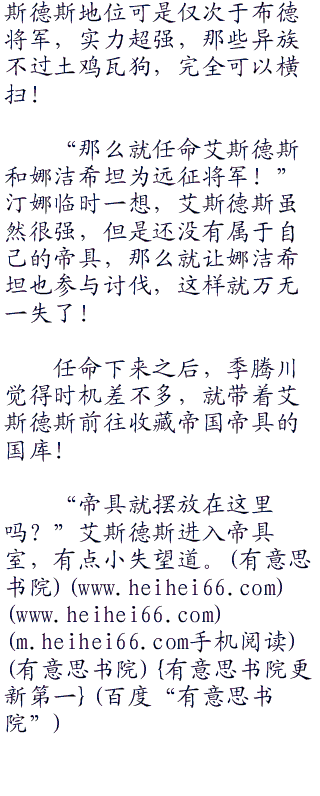 斯德斯地位可是仅次于布德
将军，实力超强，那些异族
不过土鸡瓦狗，完全可以横
扫！
“那么就任命艾斯德斯
和娜洁希坦为远征将军！”
汀娜临时一想，艾斯德斯虽
然很强，但是还没有属于自
己的帝具，那么就让娜洁希
坦也参与讨伐，这样就万无
一失了！
任命下来之后，季腾川
觉得时机差不多，就带着艾
斯德斯前往收藏帝国帝具的
国库！
“帝具就摆放在这里
吗？”艾斯德斯进入帝具
室，有点小失望道。(有意思
书院)(www.heihei66.com)
(www.heihei66.com)
(m.heihei66.com手机阅读)
(有意思书院){有意思书院更
新第一}(百度“有意思书
院”)